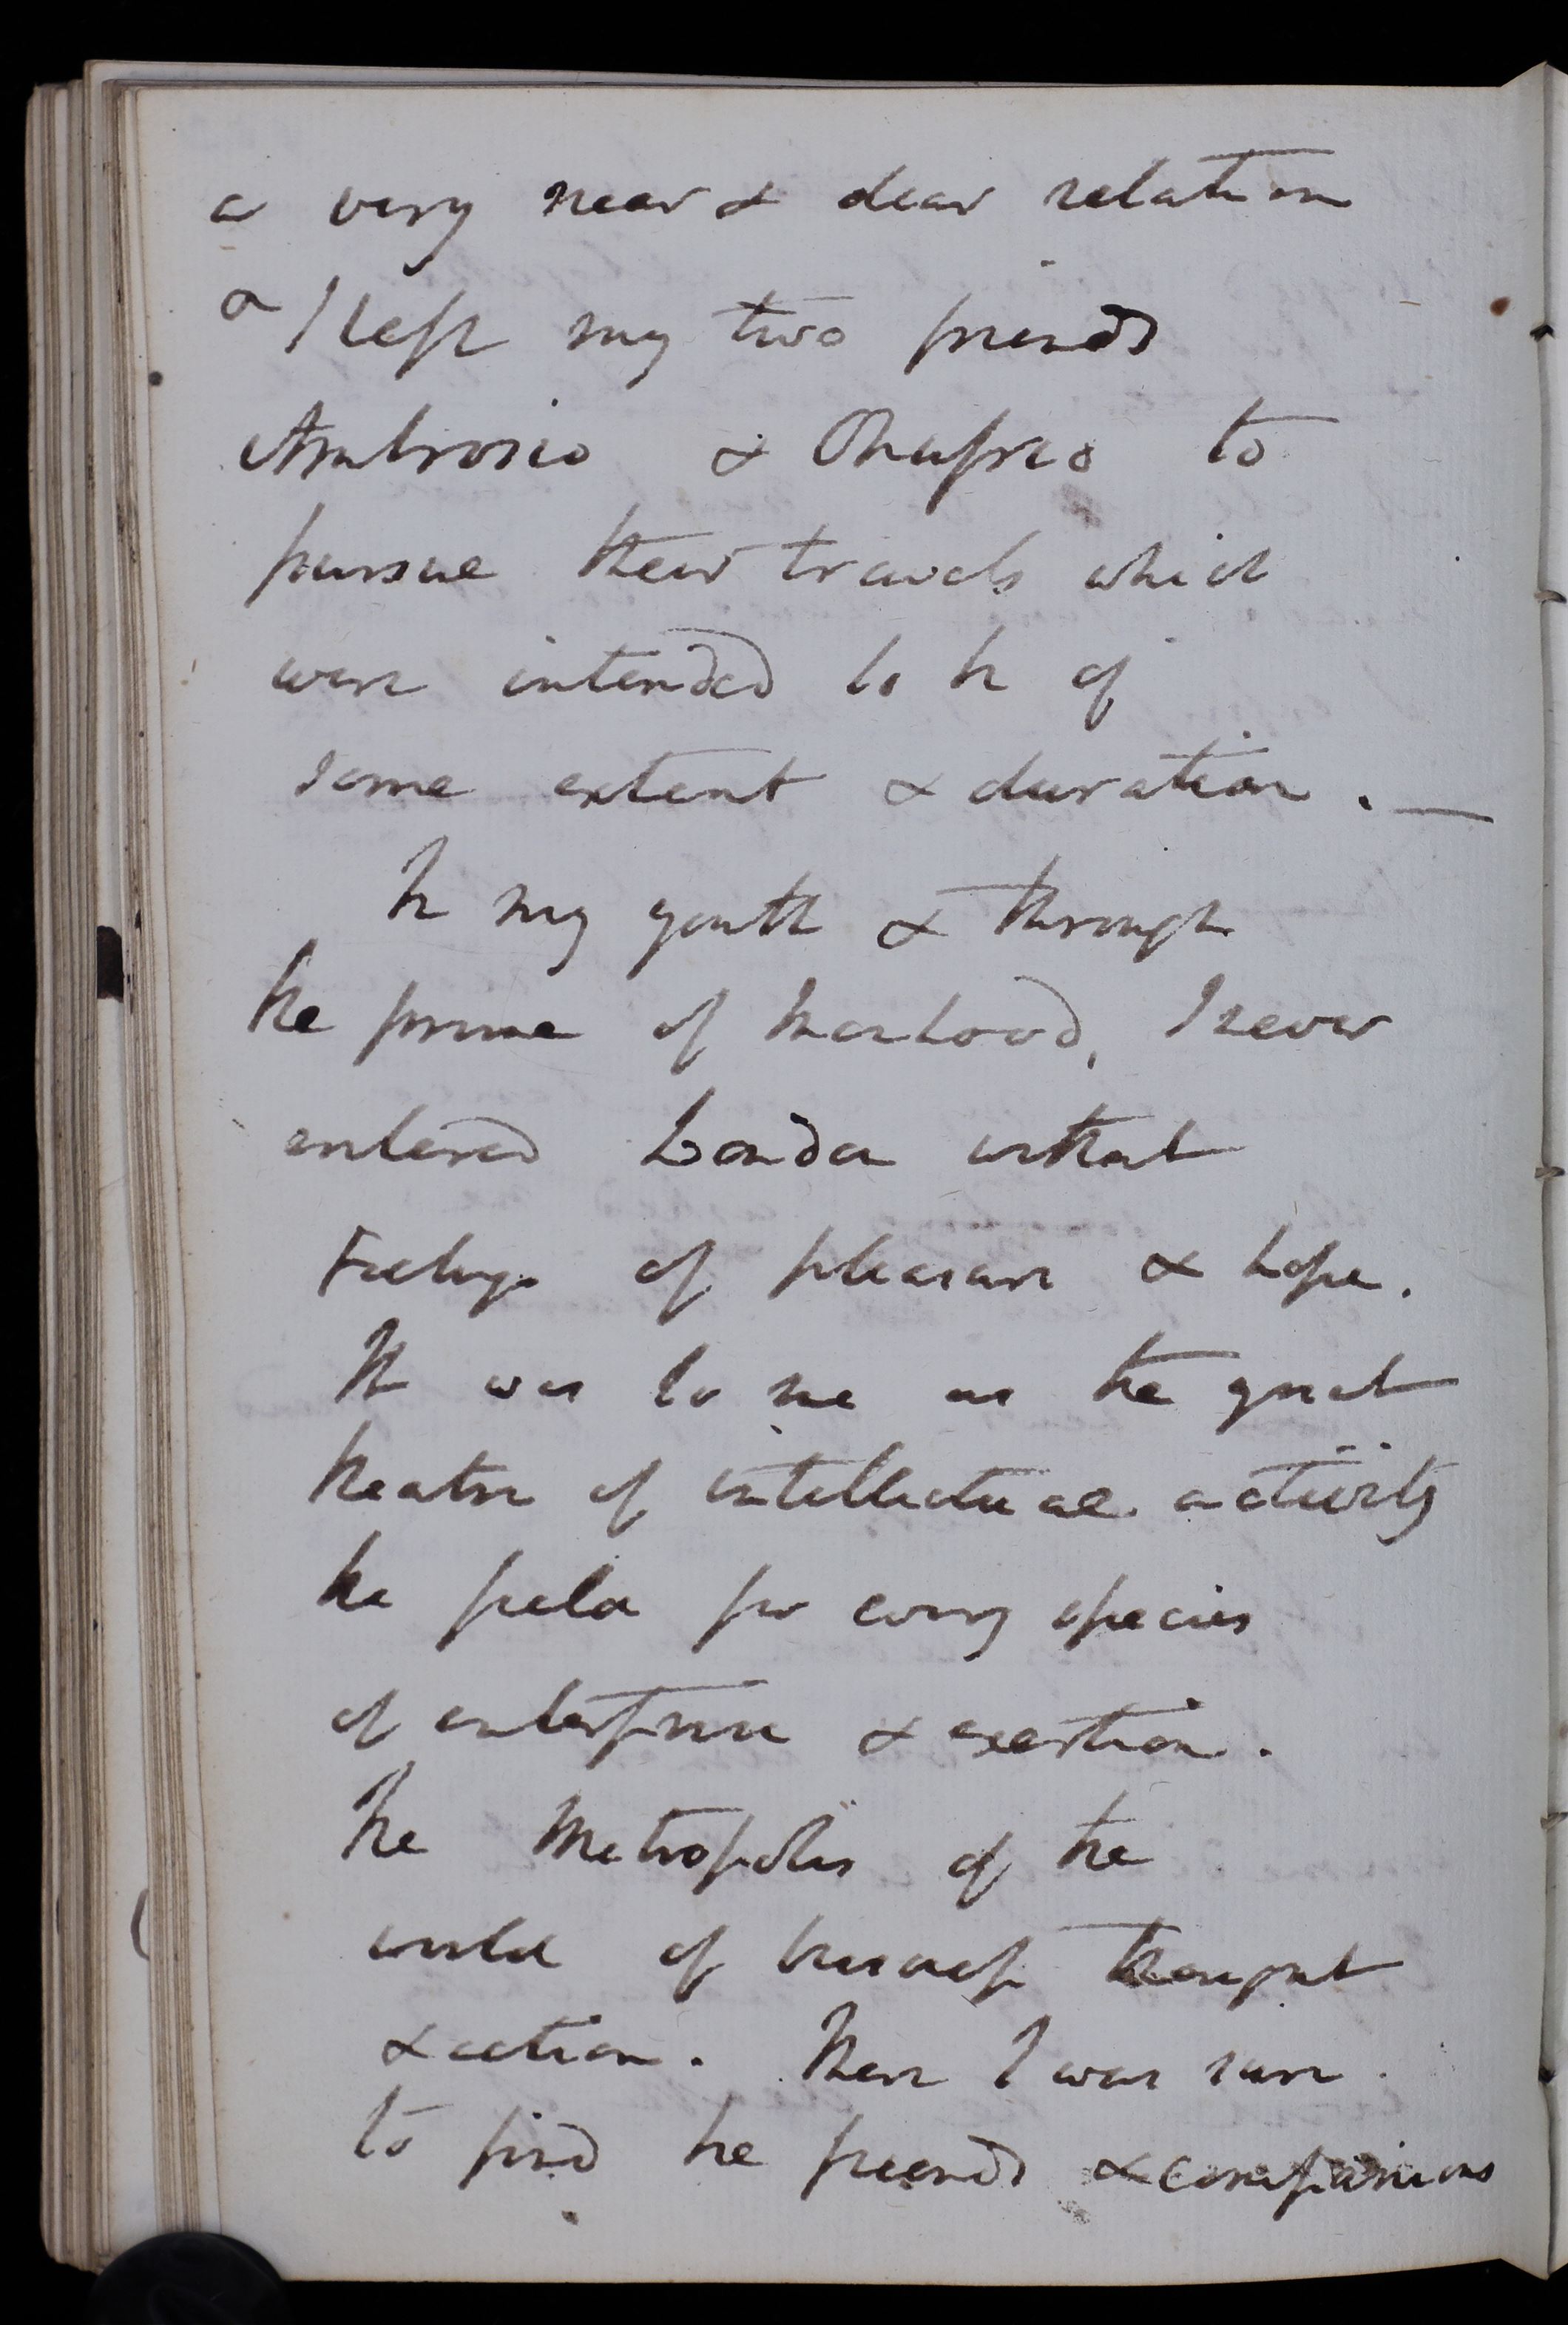 a very near & dear relation
& I left my two friends
Ambrosio & Onuphrio to
pursue their travels which
were intended to be of
some extent & duration. —
In my youth & through
the prime of manhood, I never
entered London without
Feelings of pleasure & hope.
It was to me as the great
theatre of intellectual activity
the field for every species
of enterprise & exertion.
The Metropolis of the
world of business thought
& action. There I was sure
to find the friends & companions